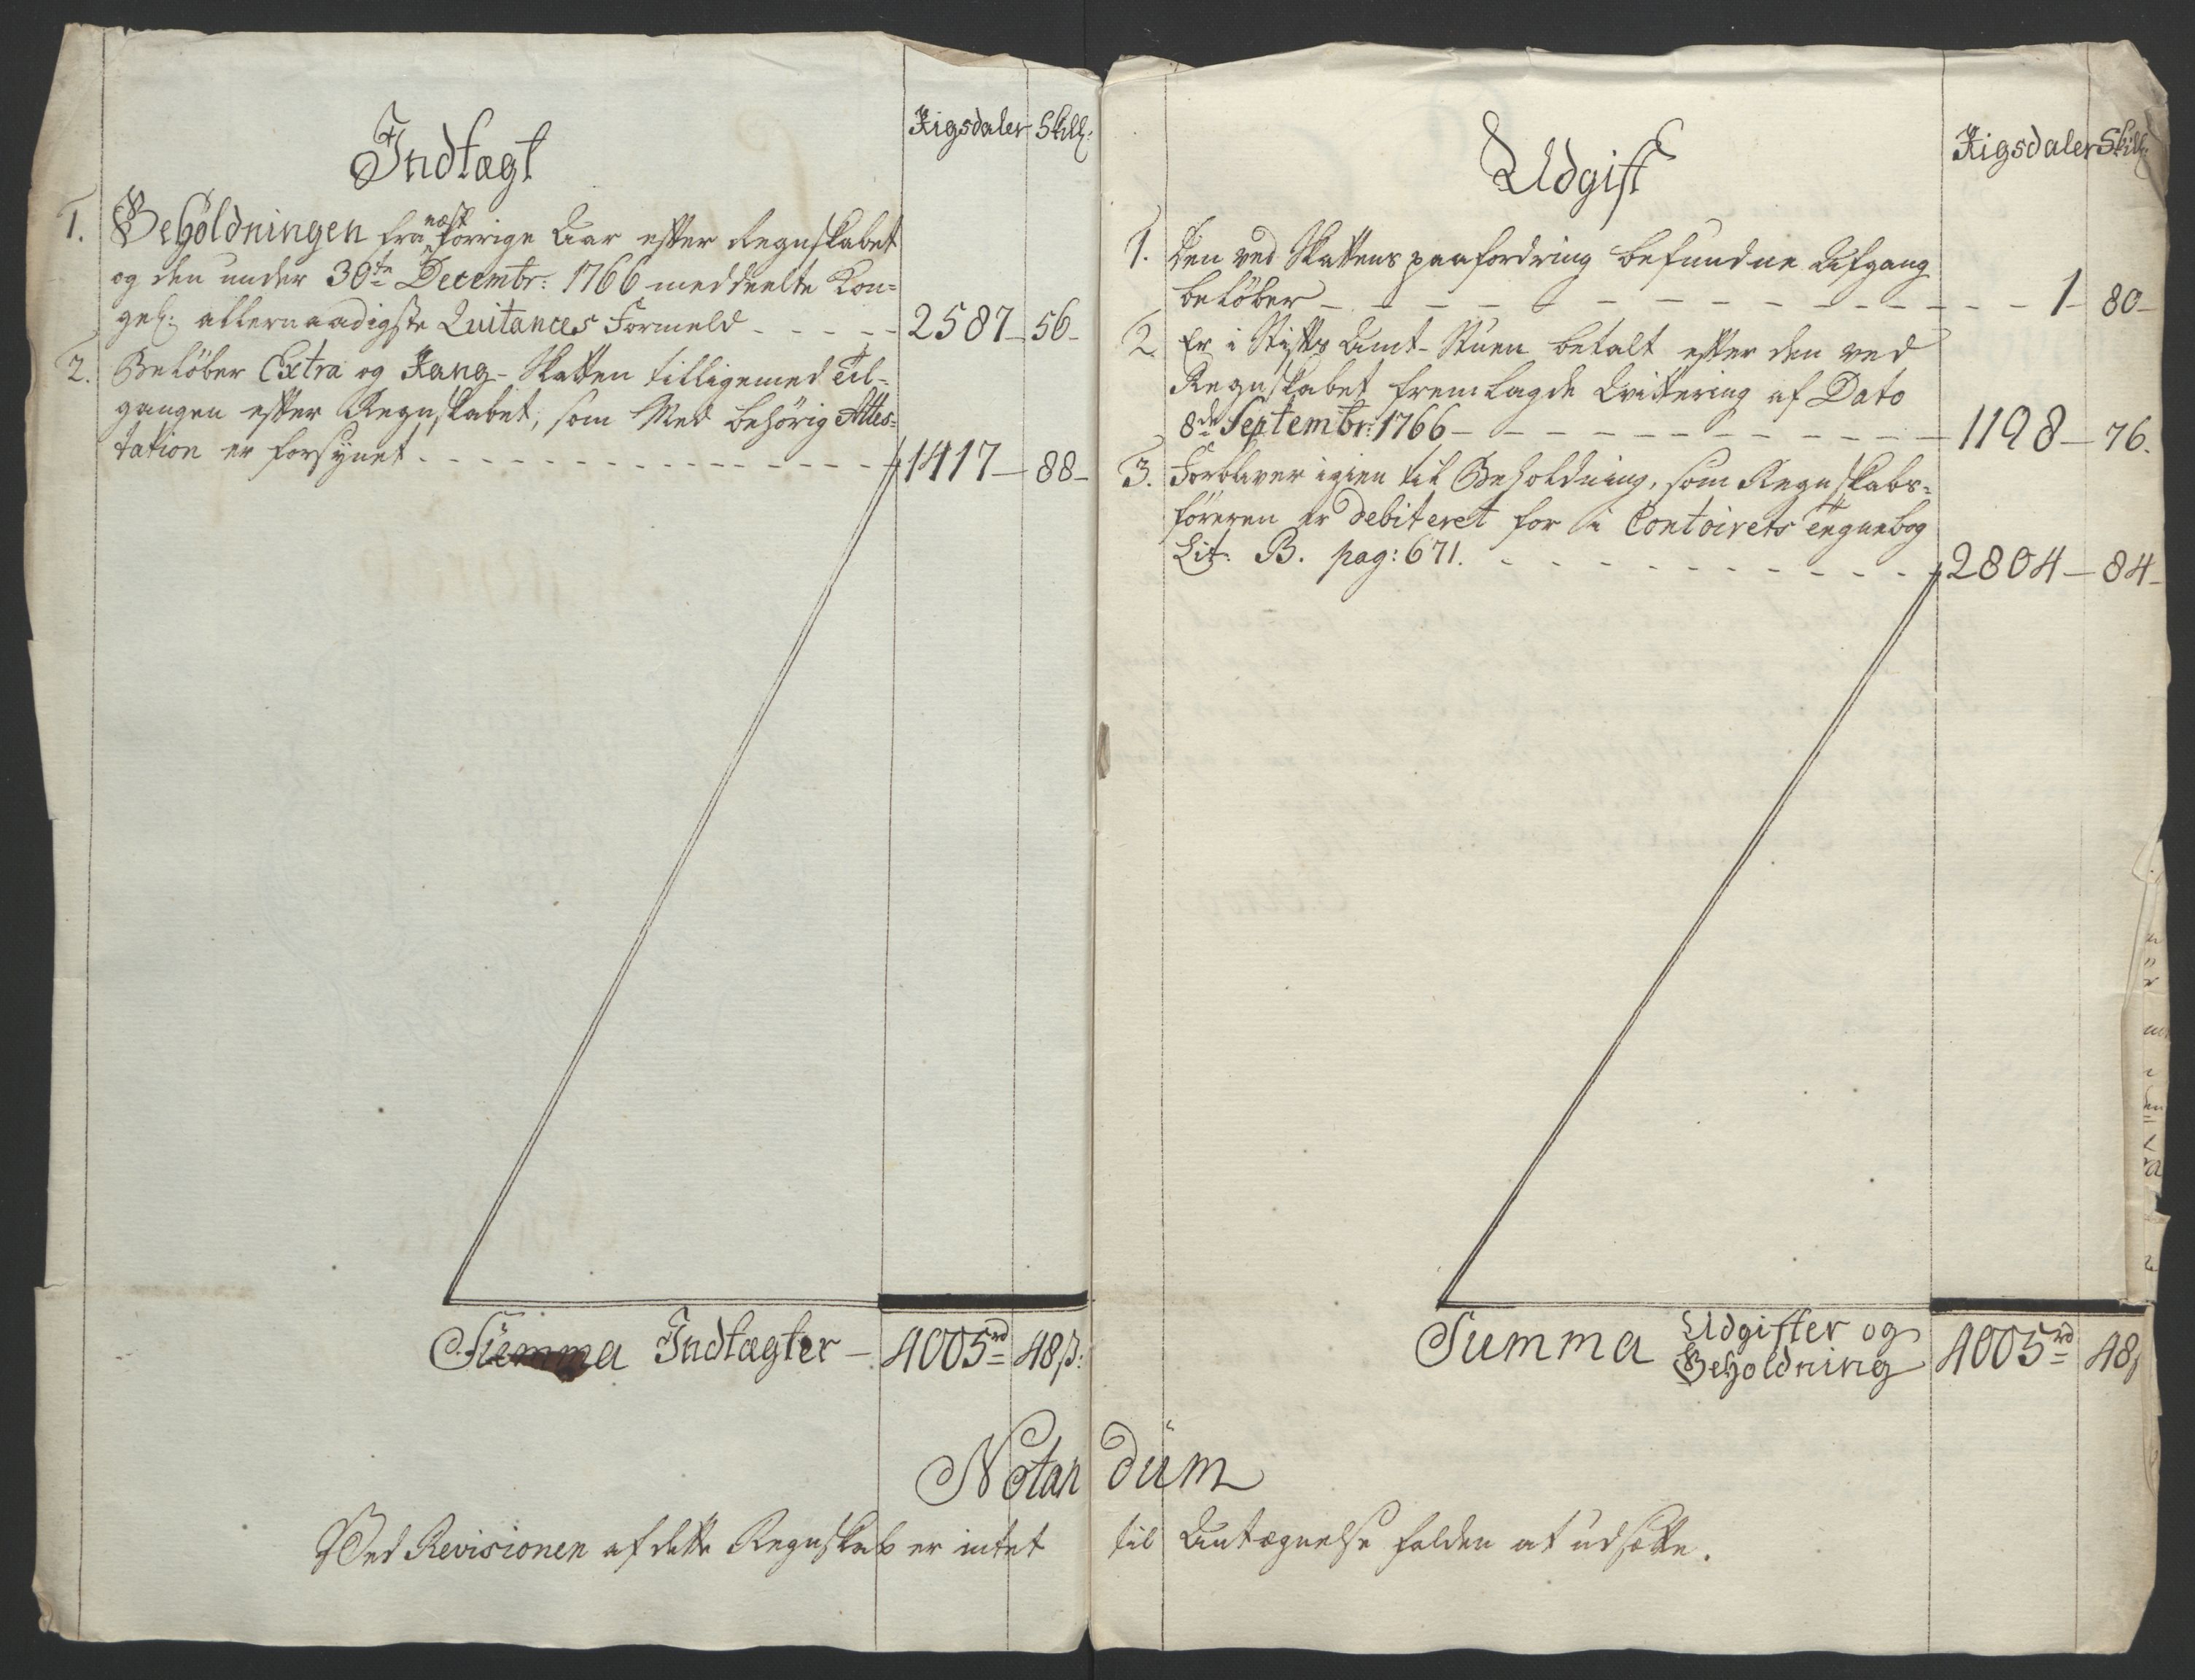 Indtægt
Rigsdaler Skill:
1. Beholdningen fra næst forrige Aar efter Regnskabet
og den under 30te Decembr: 1766 meddeelte Kon-
gel: allernaadigste Quitances Formeld - - - - - 2587 - 56 -
2. Beløber Extra og Rang-Skatten tilligemed Til-
gangen efter Regnskabet, som Med behörig Attes-
tation er forsynet - - - - - - - - 1417 - 88 -
Summa Indtægter - 4005rd 48ß:
Udgift
Rigsdaler Skill:
1. Den ved Skattens paafordring befundne Afgang
beløber - - - - - - - - 1 - 80 -
2. Er i Stifts Amt-Stuen betalt efter den ved
Regnskabet fremlagde Qvittering af Dato
8de Septembr: 1766 - - - - - - - - 1198 - 76.
3. Forbliver igien til Beholdning, som Regnskabs-
föreren er debiteret for i Contoirets Tegnebog
Lit: B. pag: 671. - - - - - - - - 2804 - 84 -
Summa Udgifter og
Beholdning 4005rd 48ß
Notandum
Ved Revisionen af dette Regnskab er intet til Antægnelse falden at udsætte.